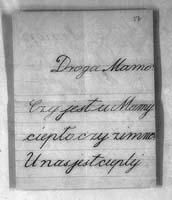 Droga Mamo
Czy jest u Mamy
ciepło, czy zimno.
U nas jest cieplej